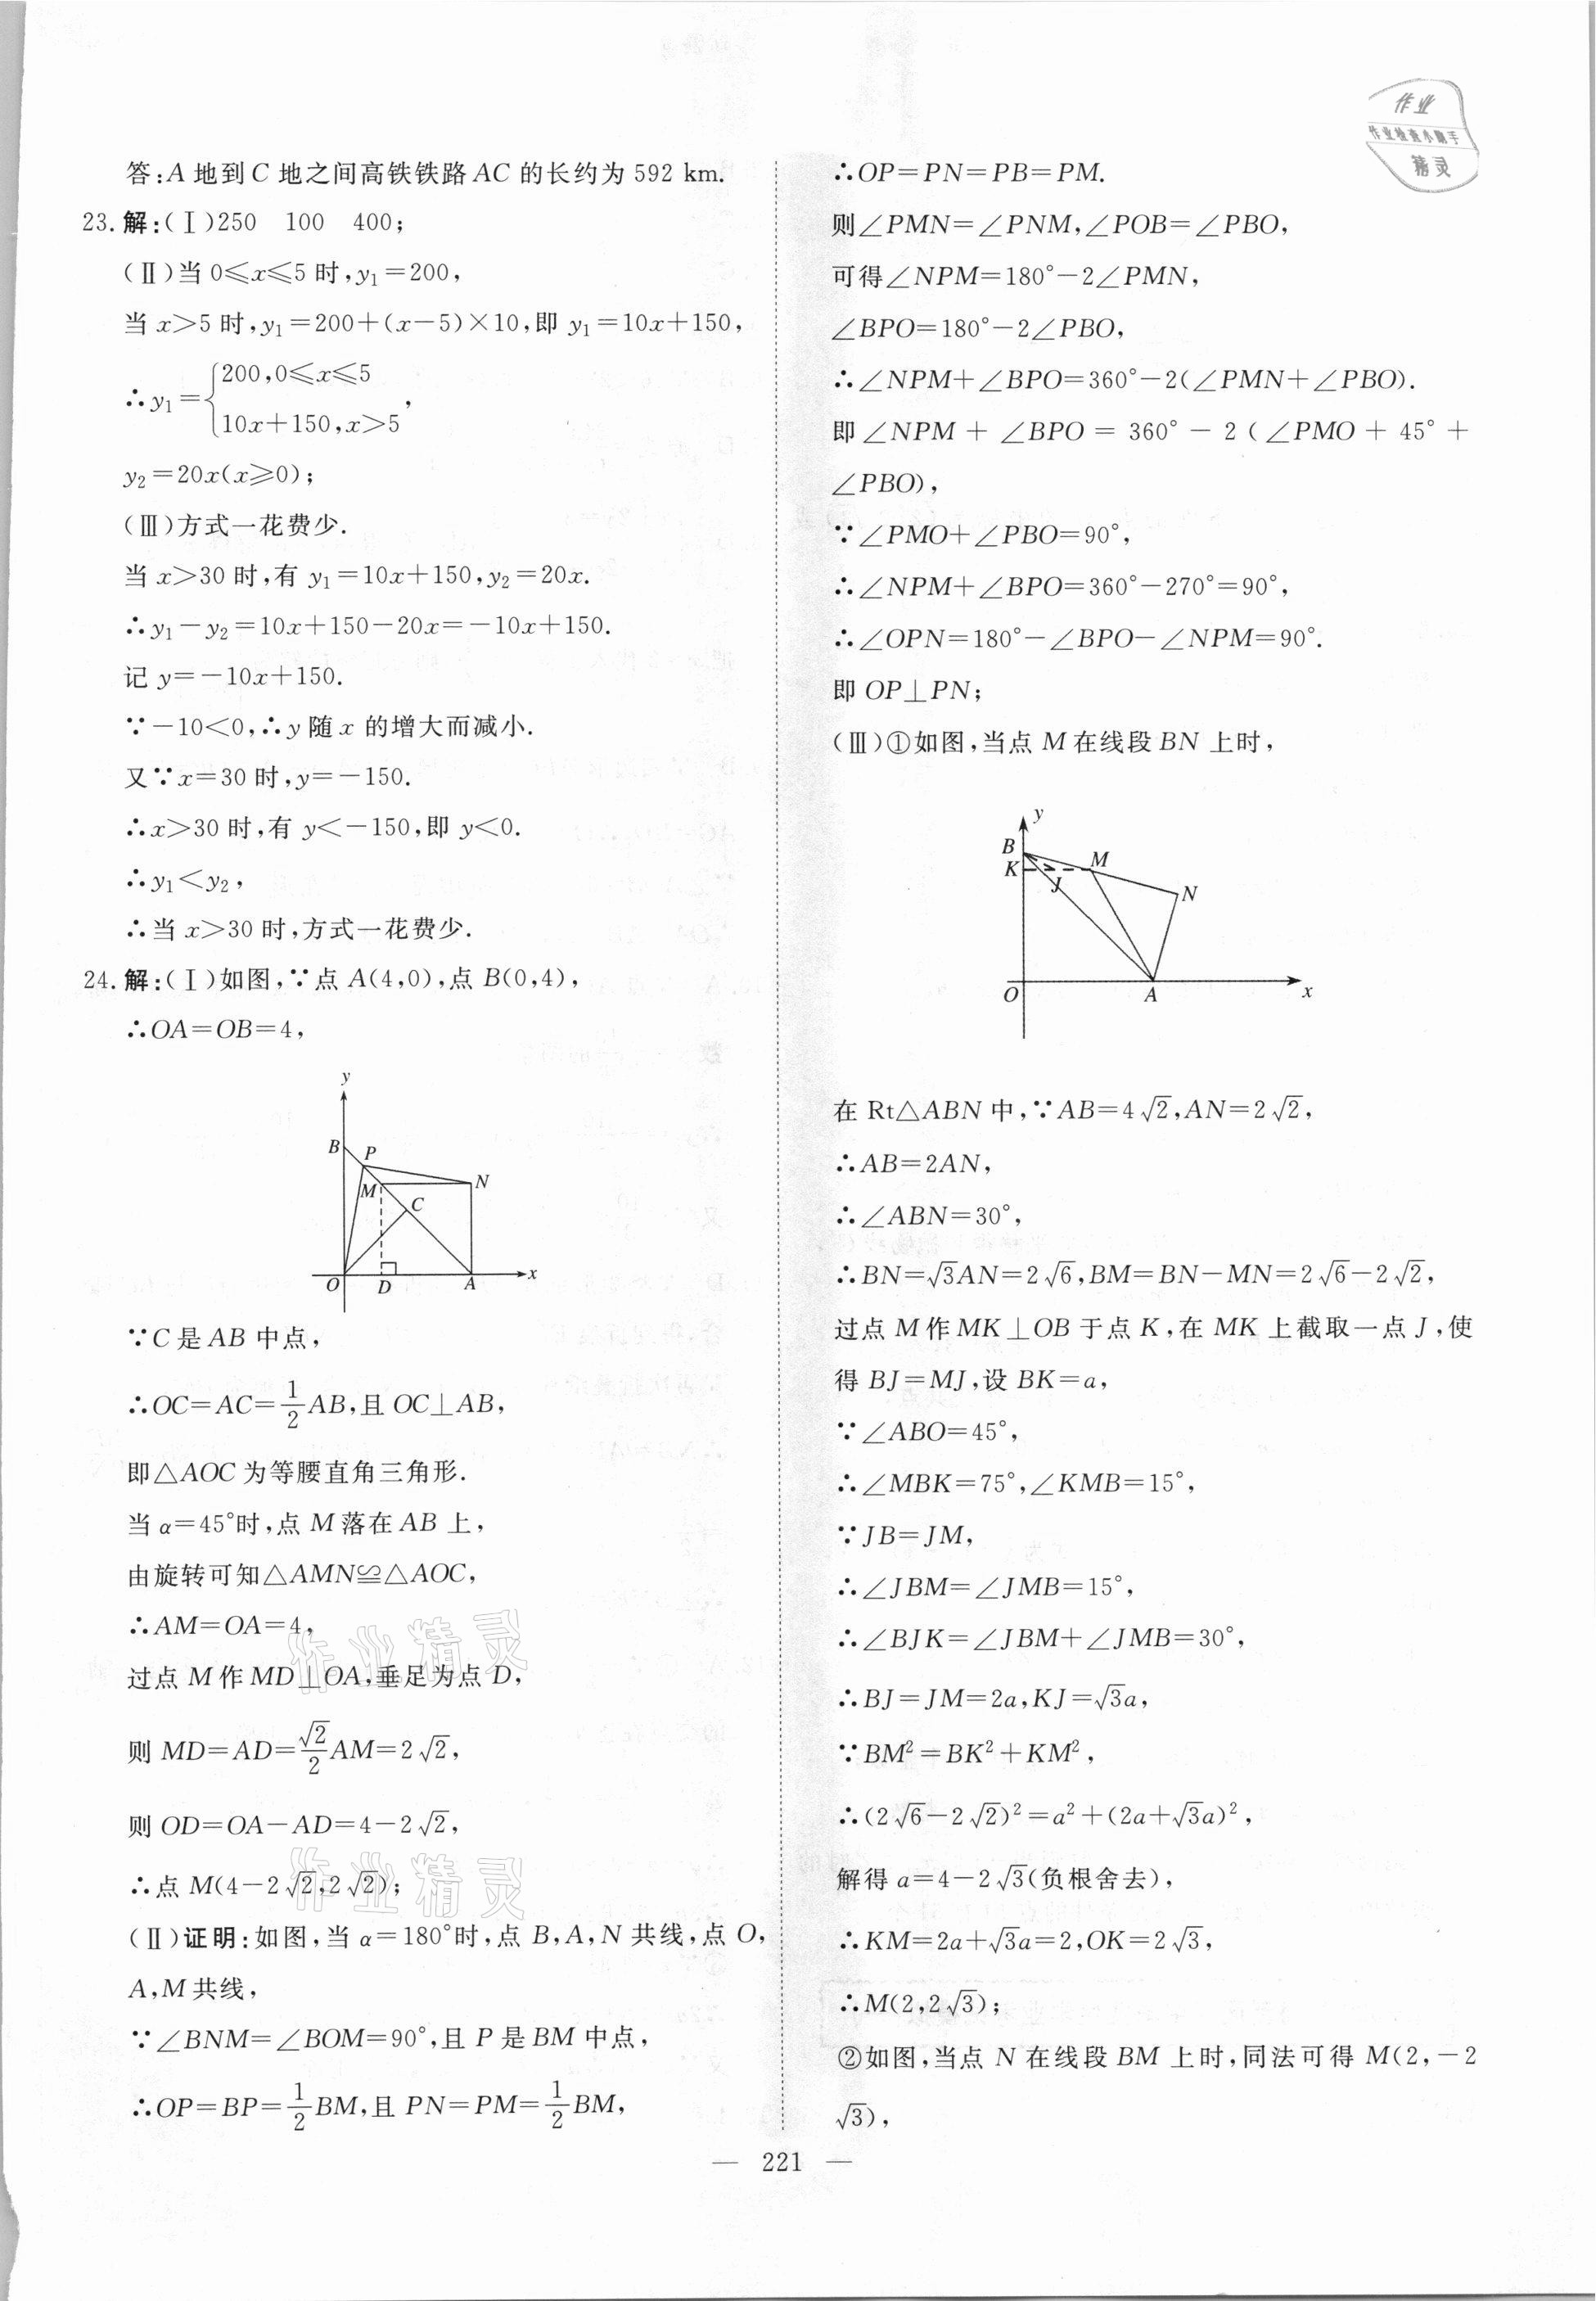 作业
作业检查小助手
精灵
答:A 地到 C 地之间高铁铁路 AC 的长约为 592 km.
23. 解:(Ⅰ)250 100 400;
(Ⅱ)当 0≤x≤5 时,y₁=200,
当 x>5 时,y₁=200+(x-5)×10,即 y₁=10x+150,
∴y₁={200,0≤x≤5
10x+150,x>5,
y₂=20x(x≥0);
(Ⅲ)方式一花费少.
当 x>30 时,有 y₁=10x+150,y₂=20x.
∴y₁-y₂=10x+150-20x=-10x+150.
记 y=-10x+150.
∵-10<0,∴y 随 x 的增大而减小.
又∵x=30 时,y=-150.
∴x>30 时,有 y<-150,即 y<0.
∴y₁<y₂,
∴当 x>30 时,方式一花费少.
24. 解:(Ⅰ)如图,∵点 A(4,0),点 B(0,4),
∴OA=OB=4,
y
B P
M N
C
O D A x
∵C 是 AB 中点,
∴OC=AC=1/2AB,且 OC⊥AB,
即△AOC 为等腰直角三角形.
当 α=45°时,点 M 落在 AB 上,
由旋转可知△AMN≌△AOC,
∴AM=OA=4,
过点 M 作 MD⊥OA,垂足为点 D,
则 MD=AD=√2/2AM=2√2,
则 OD=OA-AD=4-2√2,
∴点 M(4-2√2,2√2);
(Ⅱ)证明:如图,当 α=180°时,点 B,A,N 共线,点 O,
A,M 共线,
∵∠BNM=∠BOM=90°,且 P 是 BM 中点,
∴OP=BP=1/2BM,且 PN=PM=1/2BM,
作业精灵
作业精灵
∴OP=PN=PB=PM.
则∠PMN=∠PNM,∠POB=∠PBO,
可得∠NPM=180°-2∠PMN,
∠BPO=180°-2∠PBO,
∴∠NPM+∠BPO=360°-2(∠PMN+∠PBO).
即∠NPM+∠BPO=360°-2(∠PMO+45°+
∠PBO),
∵∠PMO+∠PBO=90°,
∴∠NPM+∠BPO=360°-270°=90°,
∴∠OPN=180°-∠BPO-∠NPM=90°.
即 OP⊥PN;
(Ⅲ)①如图,当点 M 在线段 BN 上时,
y
B M
K J N
O A x
在 Rt△ABN 中,∵AB=4√2,AN=2√2,
∴AB=2AN,
∴∠ABN=30°,
∴BN=√3AN=2√6,BM=BN-MN=2√6-2√2,
过点 M 作 MK⊥OB 于点 K,在 MK 上截取一点 J,使
得 BJ=MJ,设 BK=a,
∵∠ABO=45°,
∴∠MBK=75°,∠KMB=15°,
∵JB=JM,
∴∠JBM=∠JMB=15°,
∴∠BJK=∠JBM+∠JMB=30°,
∴BJ=JM=2a,KJ=√3a,
∵BM²=BK²+KM²,
∴(2√6-2√2)²=a²+(2a+√3a)²,
解得 a=4-2√3(负根舍去),
∴KM=2a+√3a=2,OK=2√3,
∴M(2,2√3);
②如图,当点 N 在线段 BM 上时,同法可得 M(2,-2
√3),
— 221 —